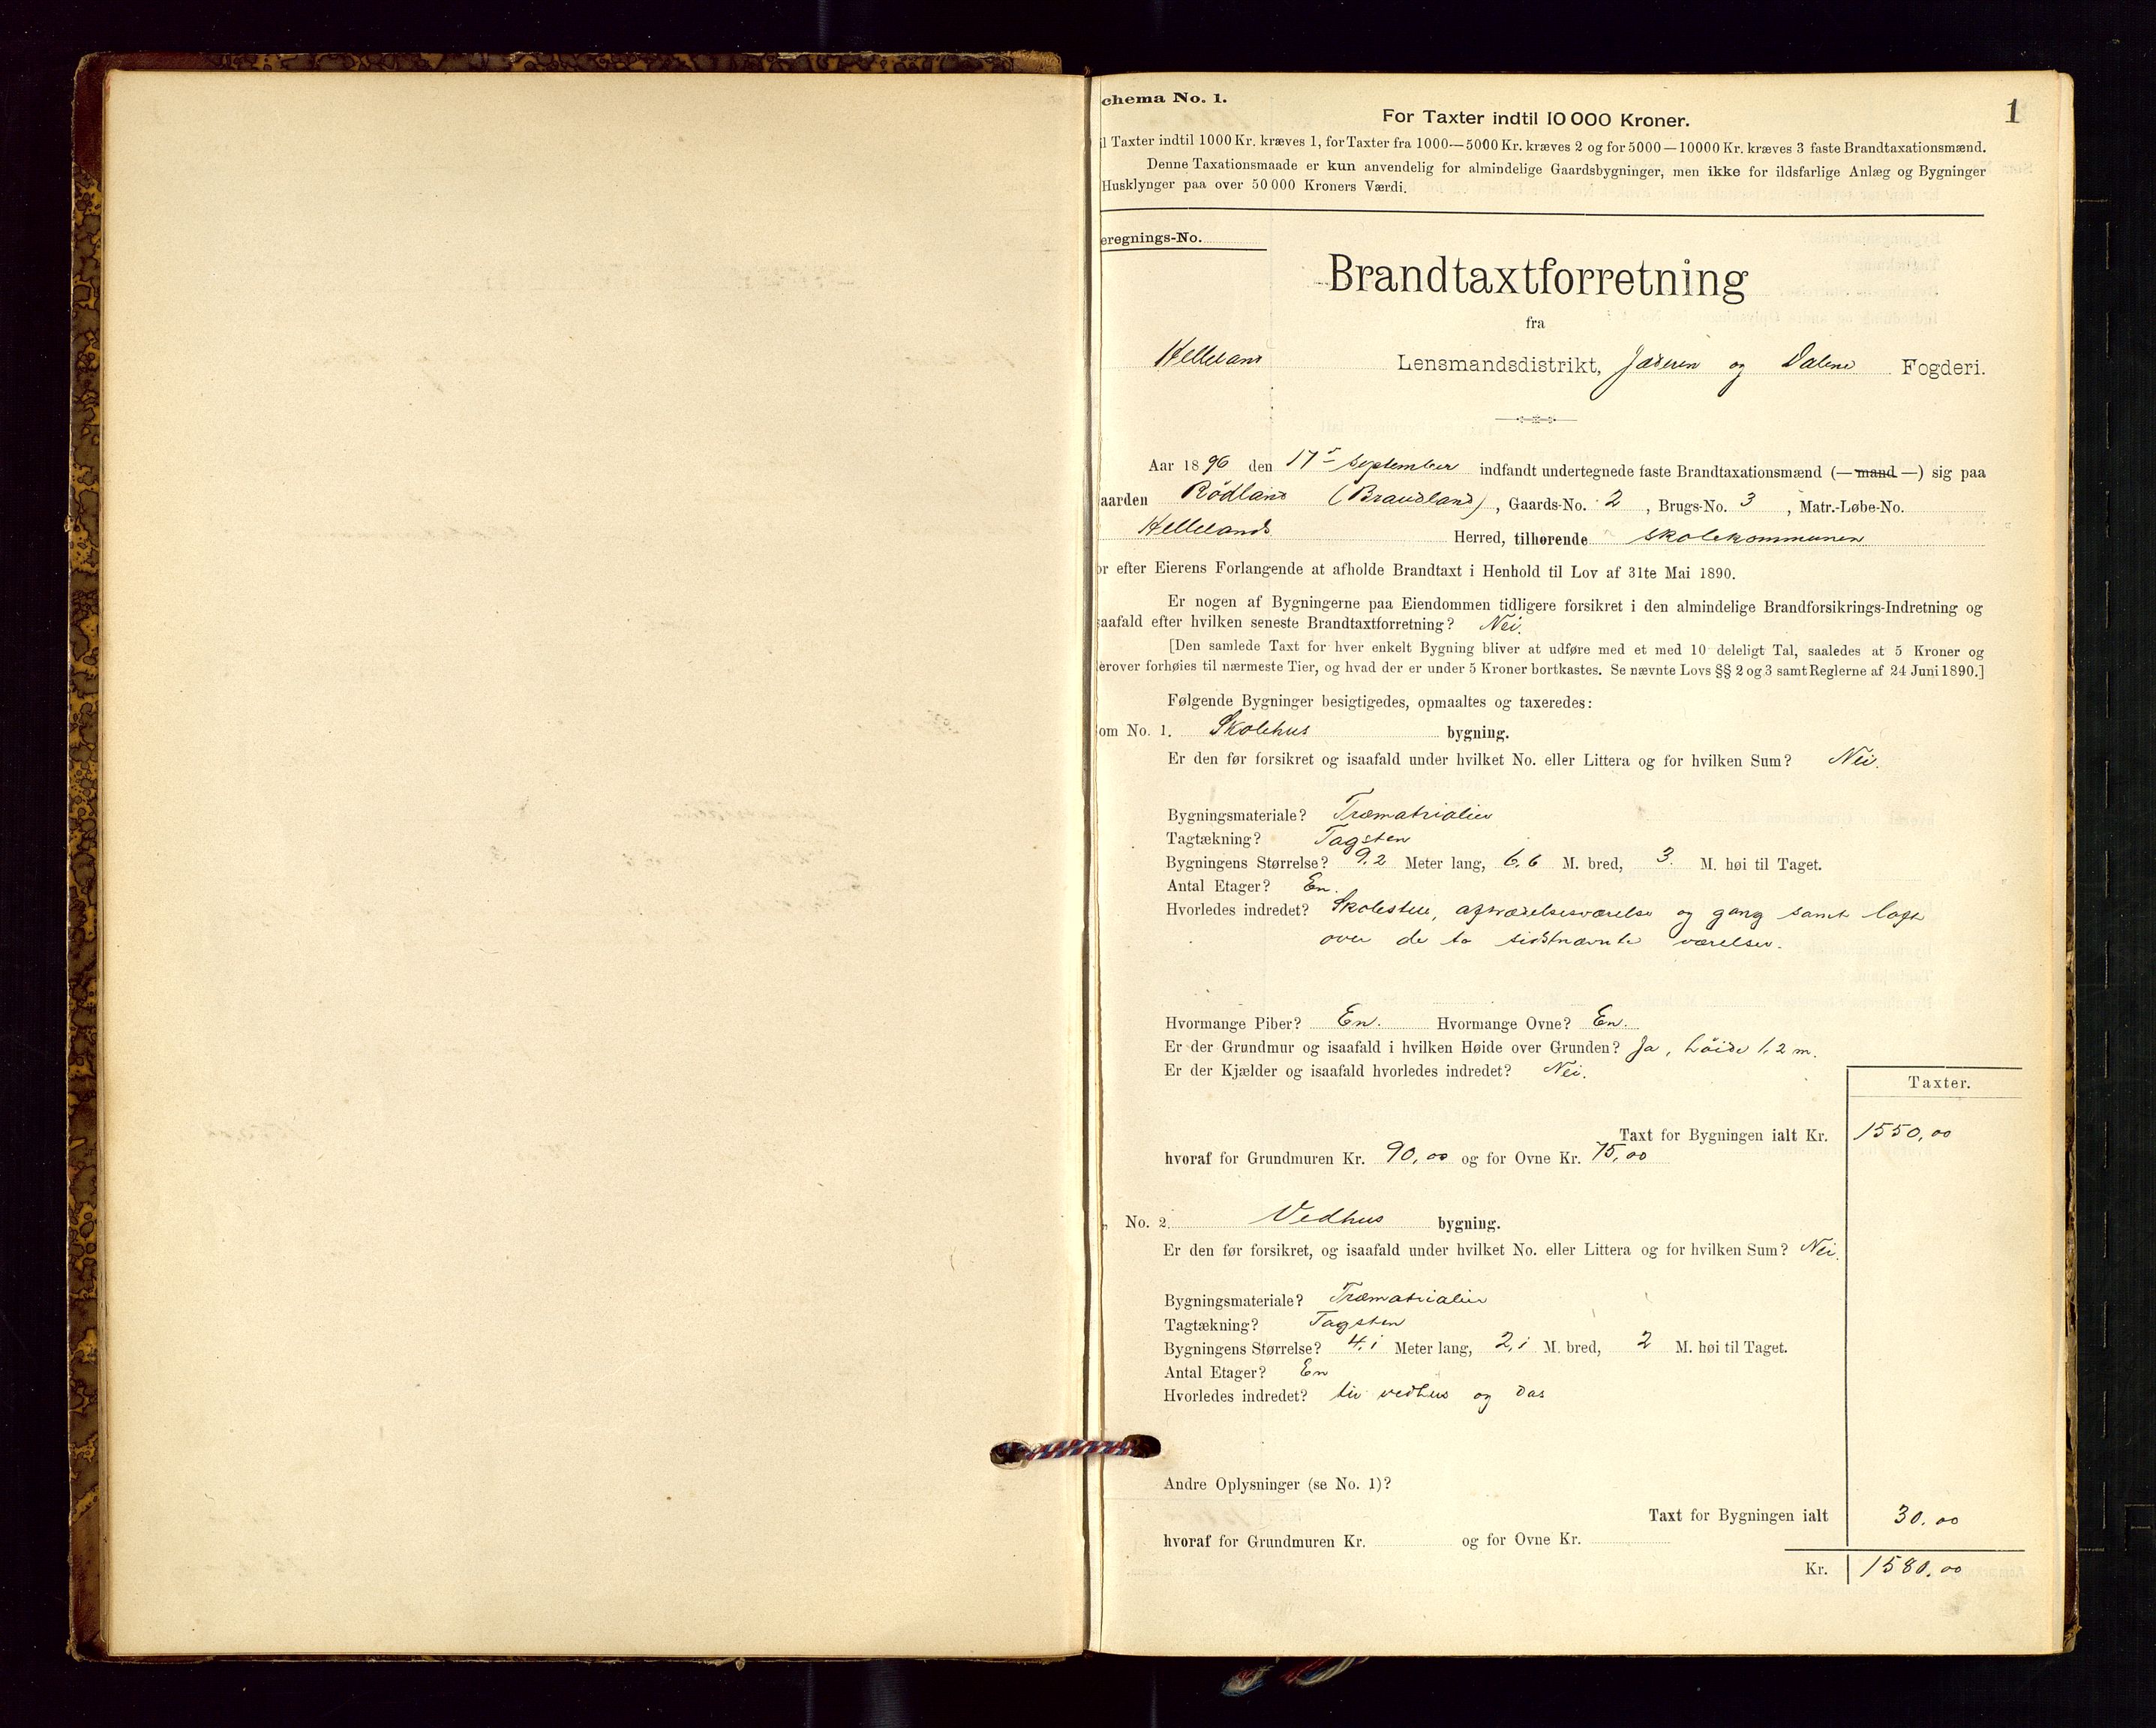 1
chema No. 1.
For Taxter indtil 10 000 Kroner.
il Taxter indtil 1000 Kr. kræves 1, for Taxter fra 1000—5000 Kr. kræves 2 og for 5000—10000 Kr. kræves 3 faste Brandtaxationsmænd.
Denne Taxationsmaade er kun anvendelig for almindelige Gaardsbygninger, men ikke for ildsfarlige Anlæg og Bygninger
Husklynger paa over 50 000 Kroners Værdi.
eregnings-No.
Brandtaxtforretning
fra
Helleland Lensmandsdistrikt, Jæderen og Dalene Fogderi.
Aar 1896 den 17 September indfandt undertegnede faste Brandtaxationsmænd (— mand —) sig paa
aarden Rødland (Braudland), Gaards-No. 2, Brugs-No. 3, Matr.-Løbe-No.
Hellelands Herred, tilhørende skolekommunen
or efter Eierens Forlangende at afholde Brandtaxt i Henhold til Lov af 31te Mai 1890.
Er nogen af Bygningerne paa Eiendommen tidligere forsikret i den almindelige Brandforsikrings-Indretning og
saafald efter hvilken seneste Brandtaxtforretning? Nei.
[Den samlede Taxt for hver enkelt Bygning bliver at udføre med et med 10 deleligt Tal, saaledes at 5 Kroner og
erover forhøies til nærmeste Tier, og hvad der er under 5 Kroner bortkastes. Se nævnte Lovs §§ 2 og 3 samt Reglerne af 24 Juni 1890.]
Følgende Bygninger besigtigedes, opmaaltes og taxeredes:
om No. 1. Skolehus bygning.
Er den før forsikret og isaafald under hvilket No. eller Littera og for hvilken Sum? Nei.
Bygningsmateriale? Træmatrialier
Tagtækning? Tagsten
Bygningens Størrelse? 9,2 Meter lang, 6,6 M. bred, 3. M. høi til Taget.
Antal Etager? En.
Hvorledes indredet? Skolestue, afkrædelsesværelse og gang samt loft
over de to sidstnævnte værelser.
Hvormange Piber? En. Hvormange Ovne? En.
Er der Grundmur og isaafald i hvilken Høide over Grunden? Ja, høide 1,2 m.
Er der Kjælder og isaafald hvorledes indredet? Nei.
Taxter.
Taxt for Bygningen ialt Kr. 1550,00
hvoraf for Grundmuren Kr. 90,00 og for Ovne Kr. 75,00
" No. 2. Vedhus bygning.
Er den før forsikret, og isaafald under hvilket No. eller Littera og for hvilken Sum? Nei.
Bygningsmateriale? Træmatrialier
Tagtækning? Tagsten
Bygningens Størrelse? 4,1 Meter lang, 2,1 M. bred, 2 M. høi til Taget.
Antal Etager? En
Hvorledes indredet? til vedhus og das
Andre Oplysninger (se No. 1)?
Taxt for Bygningen ialt 30.00
hvoraf for Grundmuren Kr. og for Ovne Kr.
Kr. 1580.00